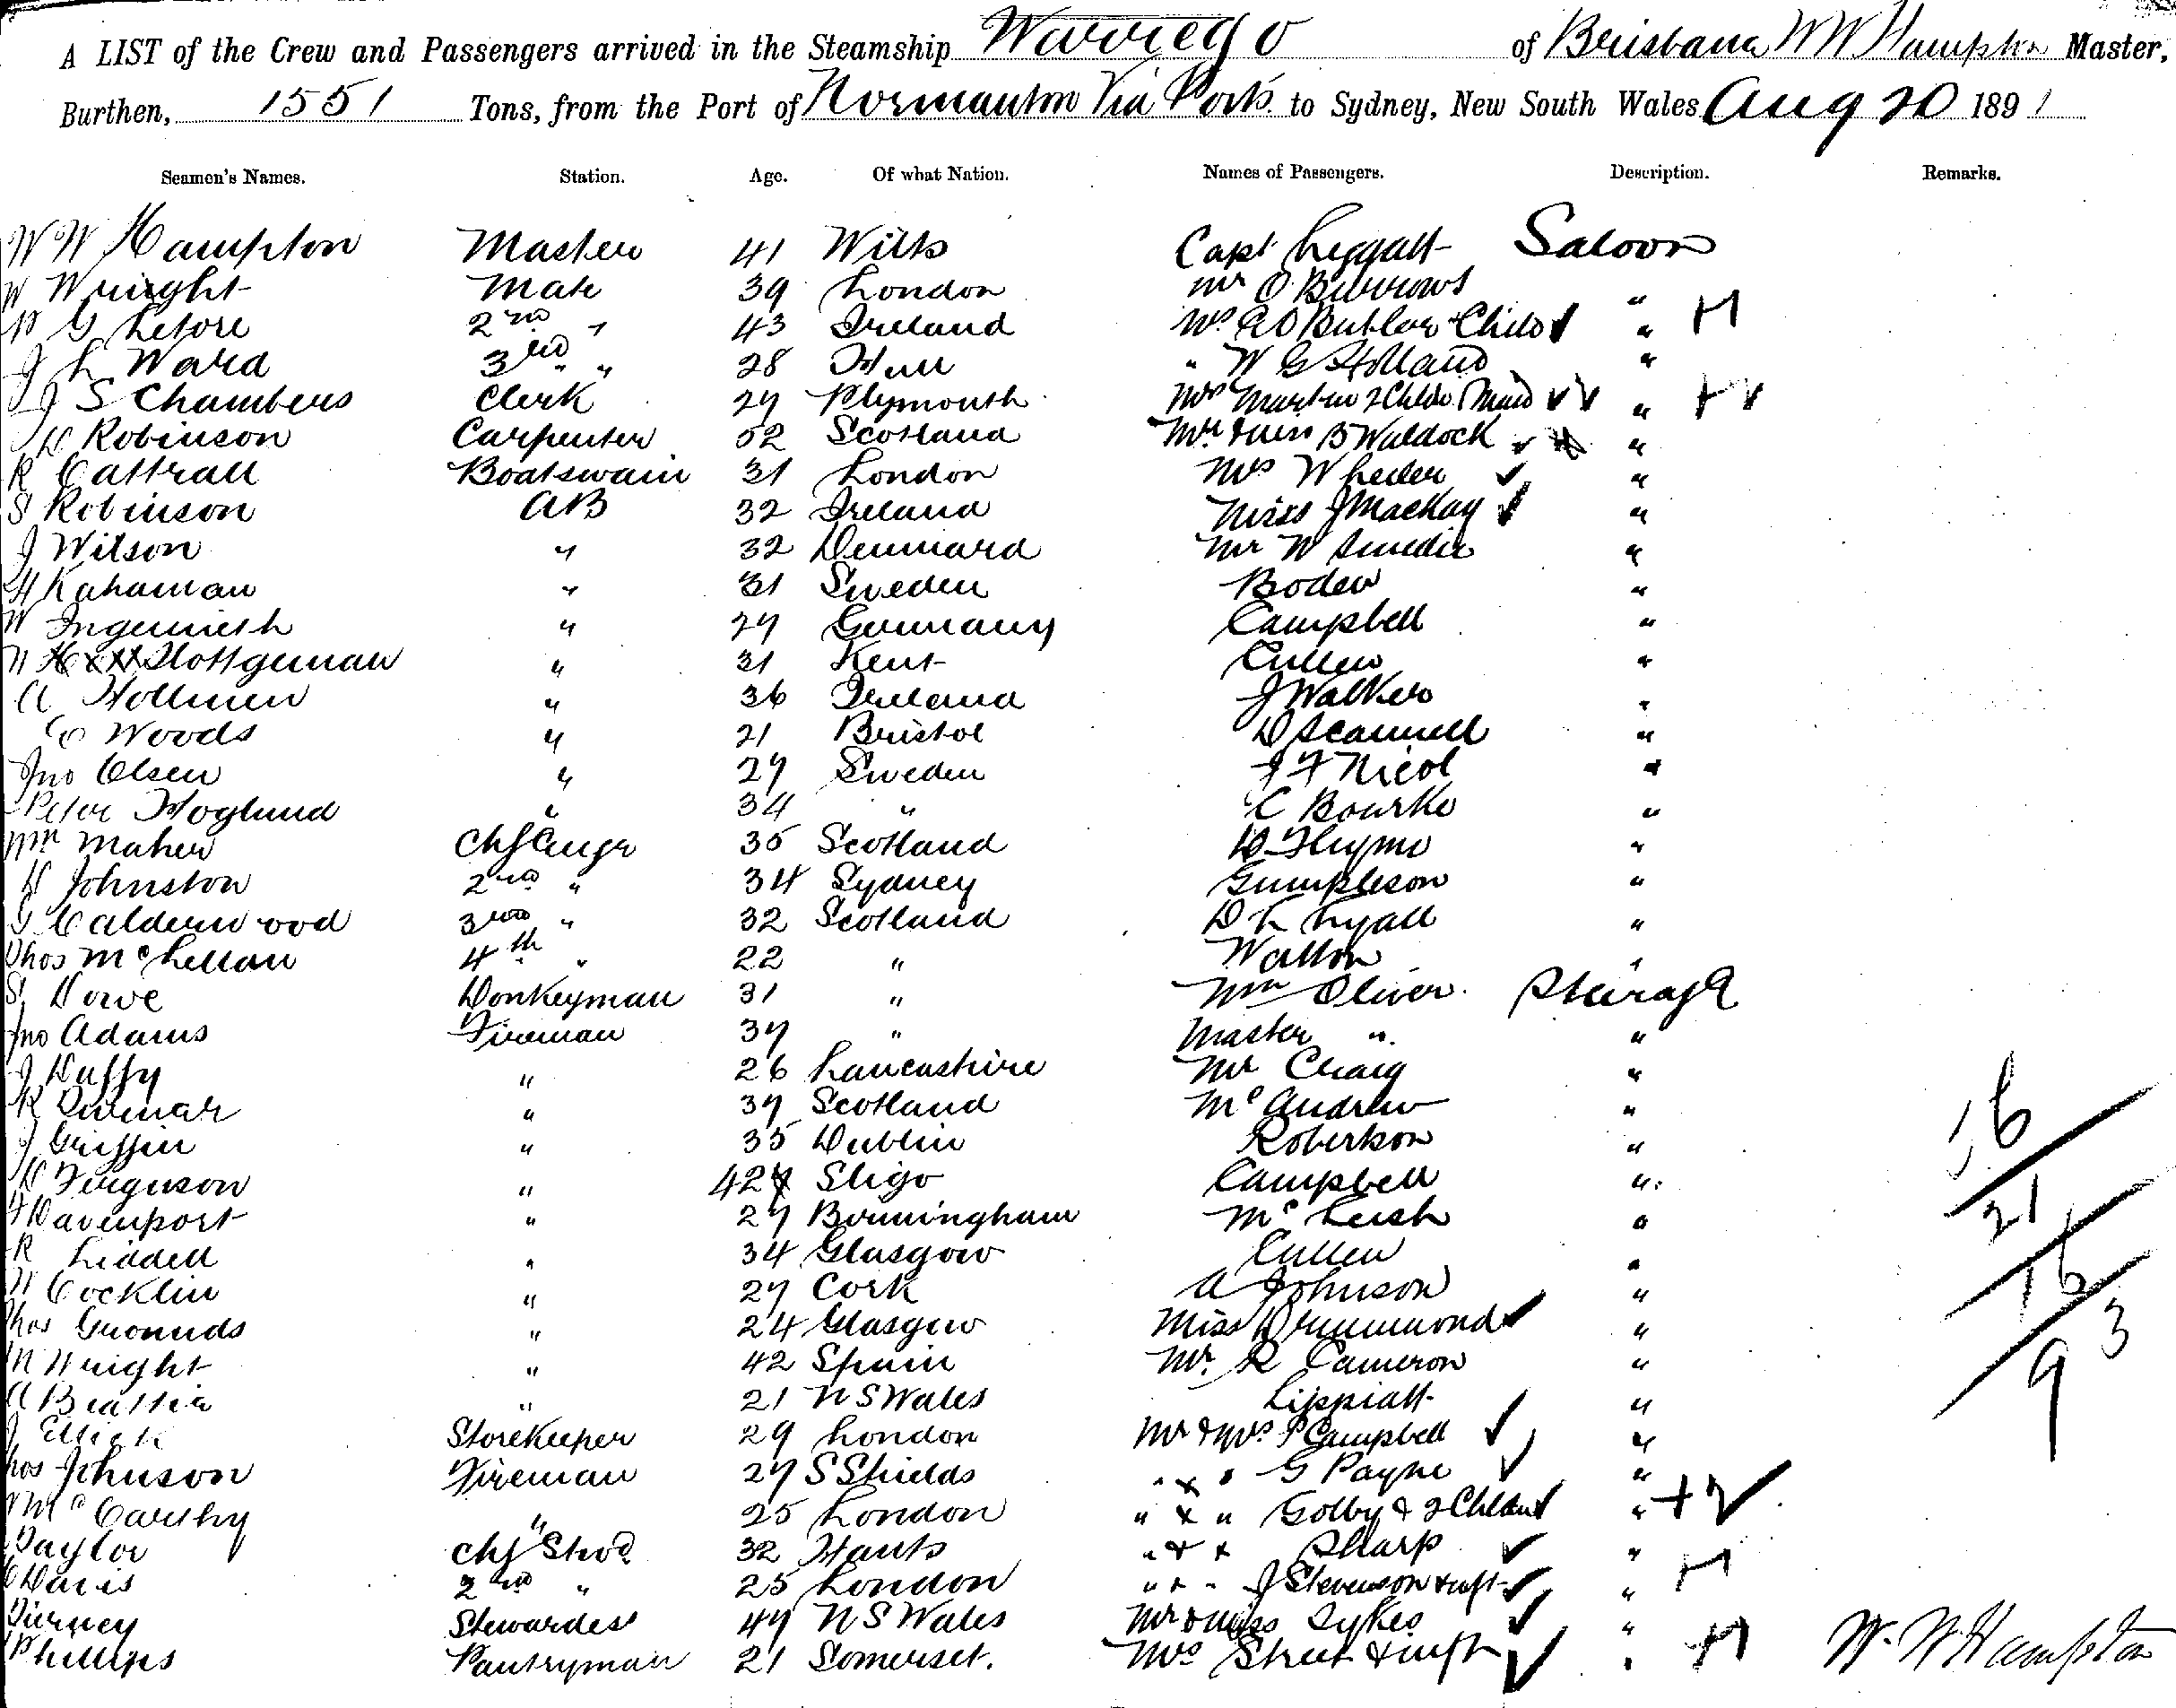 A LIST of the Crew and Passengers arrived in the Steamship Warrego of Brisbane W W Hampton Master,
Burthen, 1551 Tons, from the Port of Normanton Via Ports to Sydney, New South Wales Aug 20 1891
Seamen's Names. Station. Age. Of what Nation. Names of Passengers. Description. Remarks.
W W Hampton Master 41 Wilts Capt Leggatt Saloon
W Wright Mate 39 London Mr O Burrows "
G Lefore 2nd " 43 Ireland Mrs A O Butler & Child "
J L Ward 3rd " 28 Hull " W G Holland "
J S Chambers Clerk 27 Plymouth Mrs Martin 2 Childn & Maid "
D Robinson Carpenter 52 Scotland Mr & Miss B Waldock "
R Cattrall Boatswain 31 London Mrs Wheeler "
S Robinson AB 32 Ireland Miss J Mackay "
J Wilson " 32 Denmark Mr W "
Kahaman " 31 Sweden Boden "
W " 29 Germany Campbell "
" 31 Kent Cullen "
A Hollmen " 36 Ireland J Walker "
C Woods " 21 Bristol D Scannell "
Jno Olsen " 27 Sweden J F Nicol "
Peter Hoglund " 34 " C Bourke "
Wm Maher Chf Engr 35 Scotland "
D Johnston 2nd " 34 Sydney "
G Calderwood 3rd " 32 Scotland D L Lyall "
Thos McLellan 4th " 22 " Walton "
S. Dowe Donkeyman 31 " Wm Oliver. Steerage
Jno Adams Fireman 37 " Master " "
J Duffy " 26 Lancashire Mr Craig "
R " 37 Scotland McAndrew "
J Griffin " 35 Dublin Robertson "
D Ferguson " 42 Sligo Campbell "
Davenport " 27 Birmingham McLeish "
R Liddell " 34 Glasgow Cullen "
W Cocklin " 27 Cork A Johnson "
Thos " 24 Glasgow Miss Drummond "
W Wright " 42 Spain Mr. R Cameron "
A Beattie " 21 N S Wales Lippiatt "
J Storekeeper 29 London Mr & Mrs P Campbell "
Thos Johnson Fireman 27 S Shields " " G Payne "
McCarthy " 25 London " & " Golby & 2 Childn " + 2
Taylor Chf Stwd 32 Hants " & " Sharp "
Davis 2nd " 25 London " & " J Stevenson & inft "
Tierney Stewardess 47 N S Wales Mr & Miss Sykes "
Phillips Pantryman 21 Somerset. Mrs Street & inft "
16
21
16
3
9
W. W Hampton